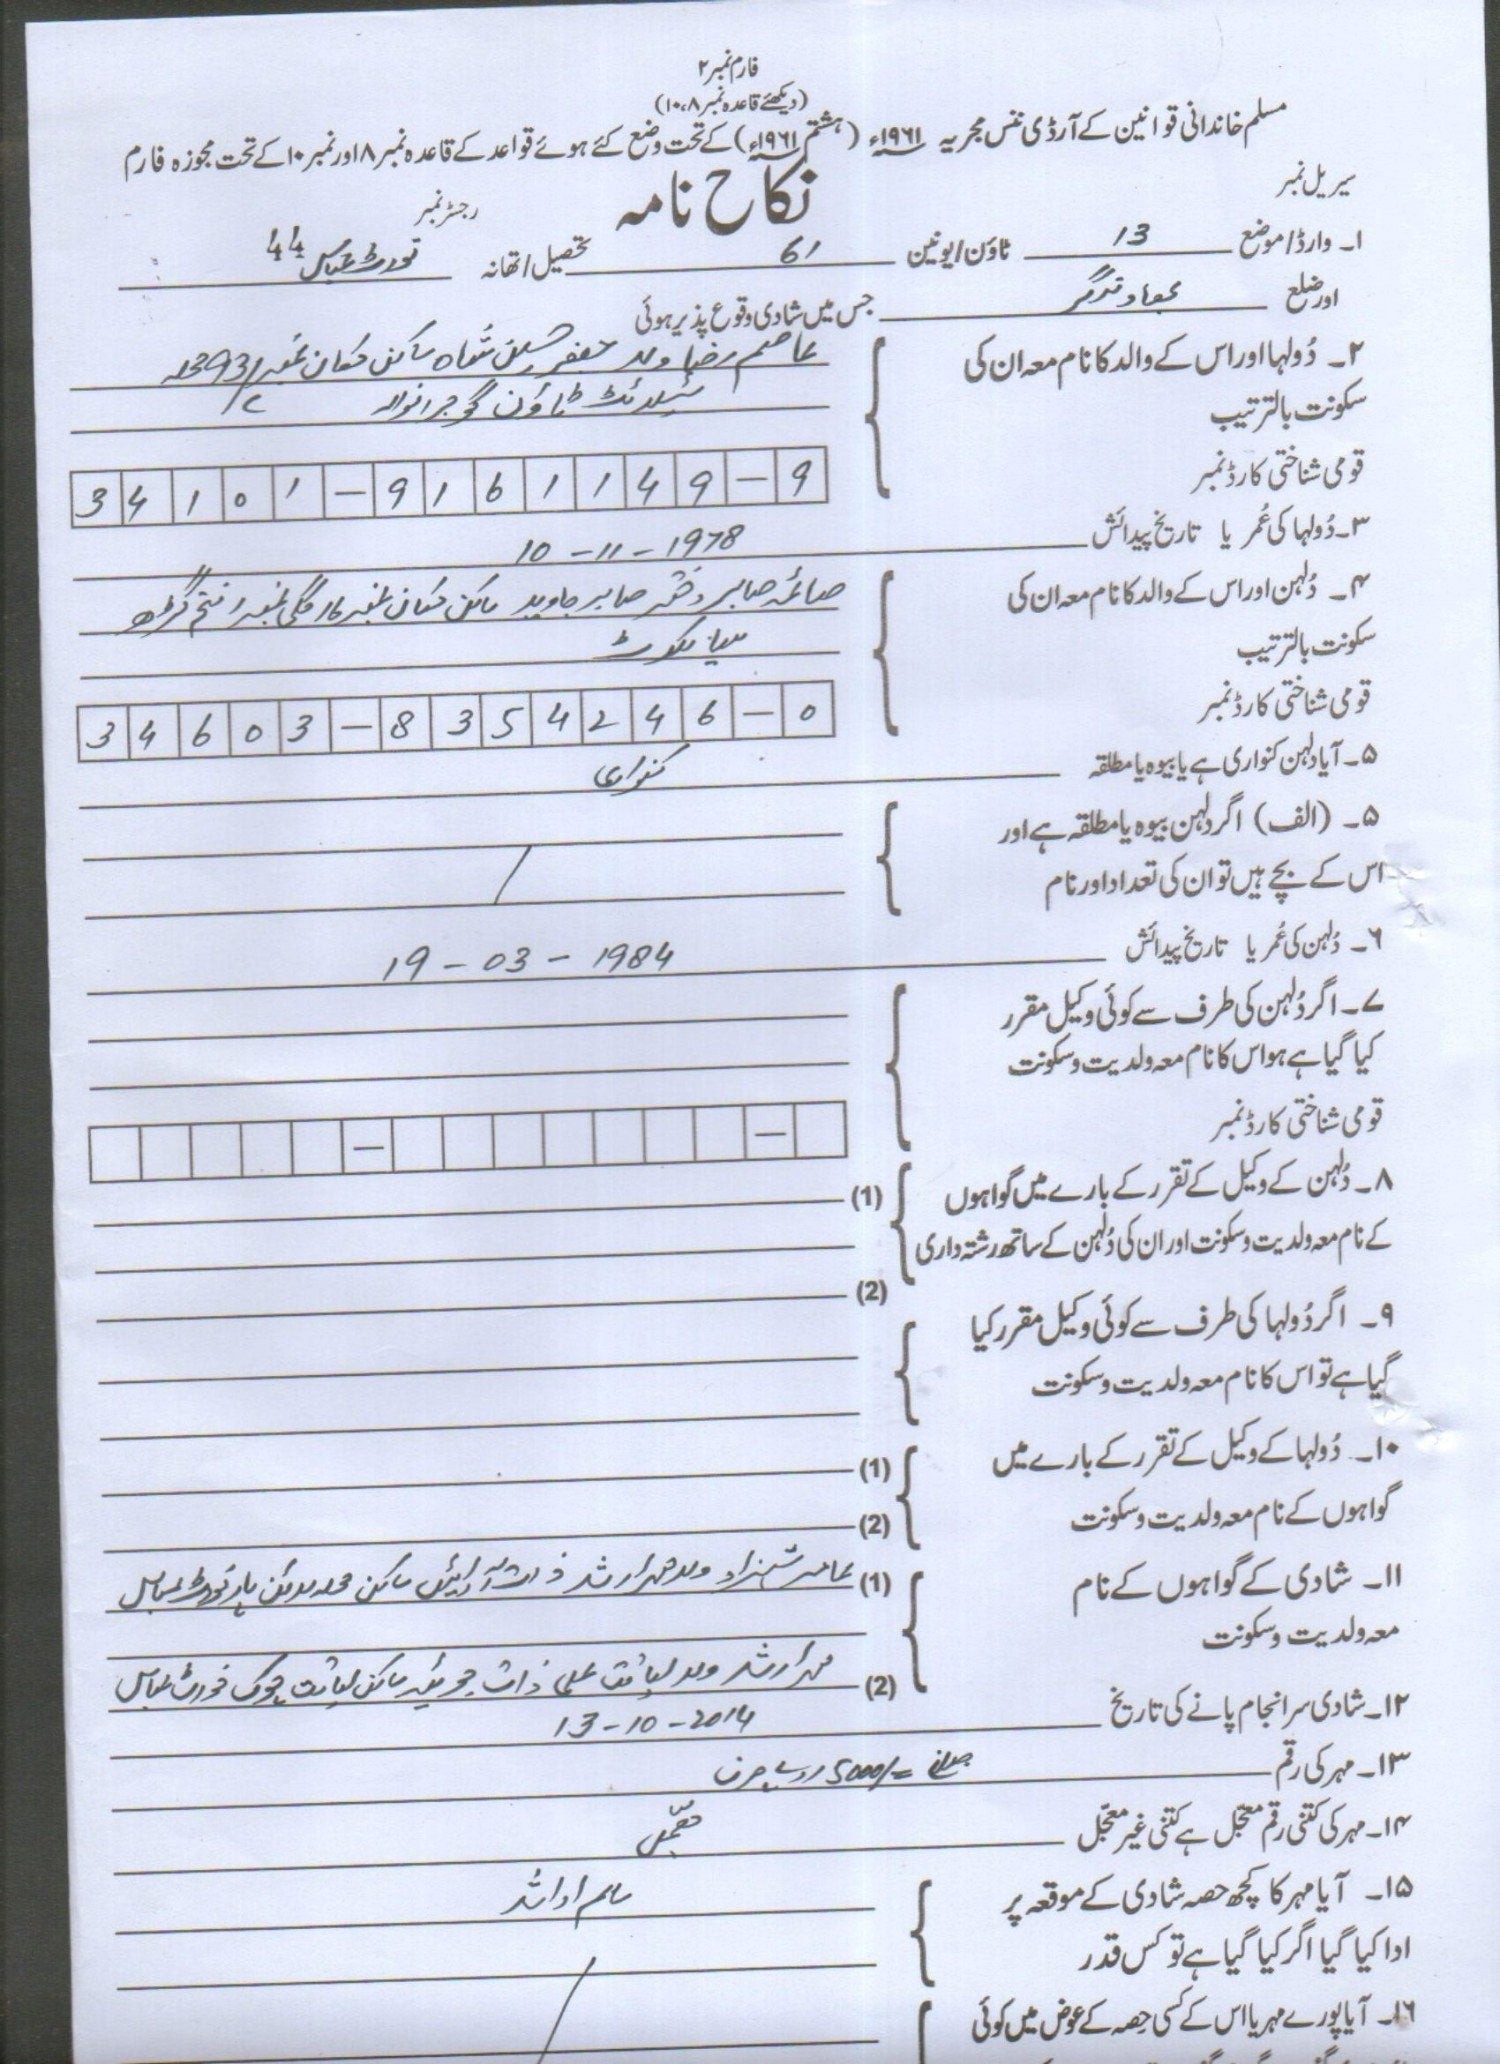 فارم نمبر ۲
(دیکھئے قاعدہ نمبر ۸، ۱۰)
مسلم خاندانی قوانین کے آرڈی ننس مجریہ ۱۹۶۱ء (ہشتم ۱۹۶۱ء) کے تحت وضع کئے ہوئے قواعد کے قاعدہ نمبر ۸ اور نمبر ۱۰ کے تحت مجوزہ فارم
سیریل نمبر
نکاح نامہ
رجسٹر نمبر 44
۱۔ وارڈ/موضع 13 ٹاؤن/یونین 61 تحصیل/تھانہ فورٹ عباس
اور ضلع بہاولنگر جس میں شادی وقوع پذیر ہوئی
۲۔ دُولہا اور اس کے والد کا نام معہ ان کی عاصم رضا ولد جعفر حسین شاہ ساکن مکان نمبر
سکونت بالترتیب سیٹلائٹ ٹاؤن گوجرانوالہ
قومی شناختی کارڈ نمبر 34101-9161149-9
۳۔ دُولہا کی عُمر یا تاریخ پیدائش 10-11-1978
۴۔ دُلہن اور اس کے والد کا نام معہ ان کی صائمہ صابر دختر صابر جاوید ساکن مکان نمبر گلی نمبر فتح گڑھ
سکونت بالترتیب سیالکوٹ
قومی شناختی کارڈ نمبر 34603-8354246-0
۵۔ آیا دلہن کنواری ہے یا بیوہ یا مطلقہ کنواری
۵۔ (الف) اگر دلہن بیوہ یا مطلقہ ہے اور
اس کے بچے ہیں تو ان کی تعداد اور نام
۶۔ دُلہن کی عُمر یا تاریخ پیدائش 19-03-1984
۷۔ اگر دُلہن کی طرف سے کوئی وکیل مقرر
کیا گیا ہے ہو اس کا نام معہ ولدیت و سکونت
قومی شناختی کارڈ نمبر – –
۸۔ دُلہن کے وکیل کے تقرر کے بارے میں گواہوں (1)
کے نام معہ ولدیت و سکونت اور ان کی دُلہن کے ساتھ رشتہ داری
(2)
۹۔ اگر دُولہا کی طرف سے کوئی وکیل مقرر کیا
گیا ہے تو اس کا نام معہ ولدیت و سکونت
۱۰۔ دُولہا کے وکیل کے تقرر کے بارے میں (1)
گواہوں کے نام معہ ولدیت و سکونت (2)
۱۱۔ شادی کے گواہوں کے نام (1) عامر شہزاد ولد محمد ارشد ذات آرائیں ساکن محلہ فورٹ عباس
معہ ولدیت و سکونت
(2) محمد ارشد ولد لیاقت علی ذات جوئیہ ساکن لیاقت چوک فورٹ عباس
۱۲۔ شادی سرانجام پانے کی تاریخ 13-10-2014
۱۳۔ مہر کی رقم مبلغ 5000/= روپے صرف
۱۴۔ مہر کی کتنی رقم معجّل ہے کتنی غیر معجّل معجّل
۱۵۔ آیا مہر کا کچھ حصہ شادی کے موقعہ پر
ادا کیا گیا اگر کیا گیا ہے تو کس قدر
۱۶۔ آیا پورے مہر یا اس کے کسی حِصہ کے عوض میں کوئی